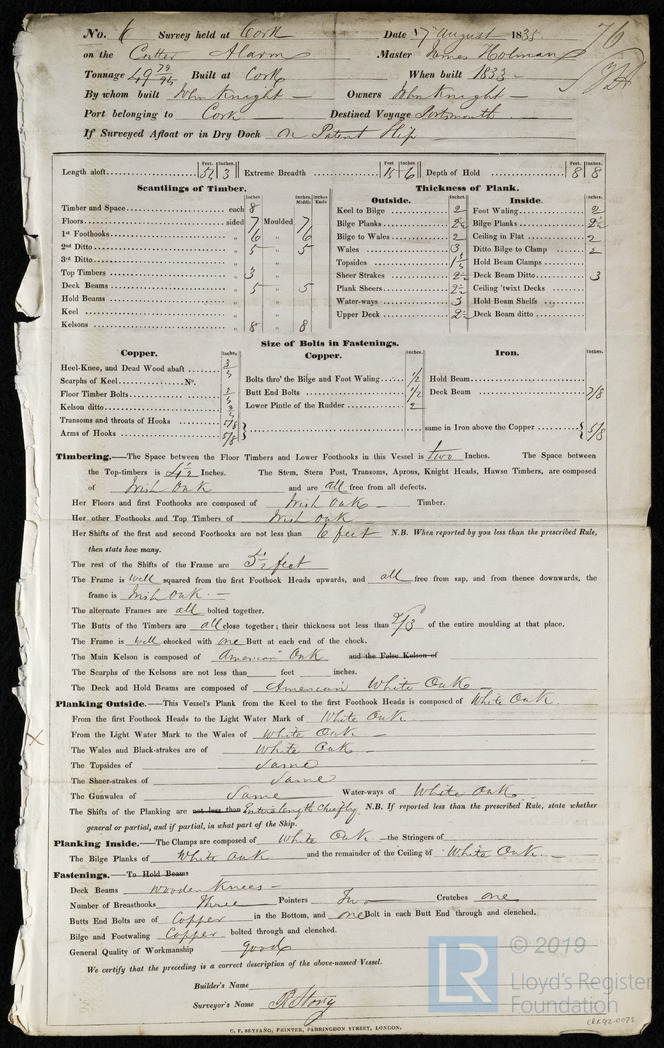 No. 6 Survey held at Cork Date 17 August 1835
76
on the Cutter Alarm Master James Holman
Tonnage 49 79/94 Built at Cork When built 1833
By whom built John Knight Owners John Knight
Port belonging to Cork Destined Voyage Portsmouth
If Surveyed Afloat or in Dry Dock On Patent Slip
Feet. Inches. Feet. Inches. Feet. Inches.
Length aloft 51 3 Extreme Breadth 15 6 Depth of Hold 8 8
Scantlings of Timber. Thickness of Plank.
Inches Inches. Middle Inches. Ends Outside. Inches Inside. Inches.
Timber and Space each 8 Keel to Bilge 2 Foot Waling 2
Floors sided 7 Moulded 7 Bilge Planks 2½ Bilge Planks 2½
1st Foothooks „ 6 „ 6 Bilge to Wales 2 Ceiling in Flat 2
2nd Ditto „ 5 „ 5 Wales 3 Ditto Bilge to Clamp 2
3rd Ditto „ „ Topsides 1½ Hold Beam Clamps
Top Timbers „ 3 „ Sheer Strakes 2½ Deck Beam Ditto 3
Deck Beams „ 5 „ 5 Plank Sheers 2½ Ceiling 'twixt Decks
Hold Beams „ „ Water-ways 3 Hold Beam Shelfs
Keel „ „ Upper Deck 2½ Deck Beam ditto
Kelsons „ 8 „ 8
Size of Bolts in Fastenings.
Copper. Inches. Copper. Inches. Iron. Inches.
Heel-Knee, and Dead Wood abaft
Scarphs of Keel No. Bolts thro' the Bilge and Foot Waling 1/2 Hold Beam
Floor Timber Bolts Butt End Bolts 1/2 Deck Beam 7/8
Kelson ditto Lower Pintle of the Rudder 2
Transoms and throats of Hooks 5/8
Arms of Hooks 5/8 same in Iron above the Copper 5/8
Timbering.—The Space between the Floor Timbers and Lower Foothooks in this Vessel is two Inches. The Space between
the Top-timbers is 4½ Inches. The Stem, Stern Post, Transoms, Aprons, Knight Heads, Hawse Timbers, are composed
of Irish Oak and are all free from all defects.
Her Floors and first Foothooks are composed of Irish Oak Timber.
Her other Foothooks and Top Timbers of Irish oak
Her Shifts of the first and second Foothooks are not less than 6 feet N.B. When reported by you less than the prescribed Rule,
then state how many.
The rest of the Shifts of the Frame are 5½ feet
The Frame is well squared from the first Foothook Heads upwards, and all free from sap, and from thence downwards, the
frame is Irish Oak.
The alternate Frames are all bolted together.
The Butts of the Timbers are all close together; their thickness not less than 2/3 of the entire moulding at that place.
The Frame is well chocked with one Butt at each end of the chock.
The Main Kelson is composed of American Oak and the False Kelson of
The Scarphs of the Kelsons are not less than feet inches.
The Deck and Hold Beams are composed of American White Oak
Planking Outside.—This Vessel's Plank from the Keel to the first Foothook Heads is composed of White Oak.
From the first Foothook Heads to the Light Water Mark of White Oak
From the Light Water Mark to the Wales of White Oak
X
The Wales and Black-strakes are of White Oak
The Topsides of Same
The Sheer-strakes of Same
The Gunwales of Same Water-ways of White Oak
The Shifts of the Planking are not less than Entire length chiefly. N.B. If reported less than the prescribed Rule, state whether
general or partial, and if partial, in what part of the Ship.
Planking Inside.—The Clamps are composed of White Oak the Stringers of
The Bilge Planks of White oak and the remainder of the Ceiling of White Oak.
Fastenings.—To Hold Beams
Deck Beams Wooden Knees
Number of Breasthooks Three Pointers Two Crutches one
Butts End Bolts are of Copper in the Bottom, and one Bolt in each Butt End through and clenched.
Bilge and Footwaling Copper bolted through and clenched.
General Quality of Workmanship good
We certify that the preceding is a correct description of the above-named Vessel.
Builder's Name
Surveyor's Name
C. F. SEYFANG, PRINTER, FARRINGDON STREET, LONDON.
LR © 2019
Lloyd's Register
Foundation